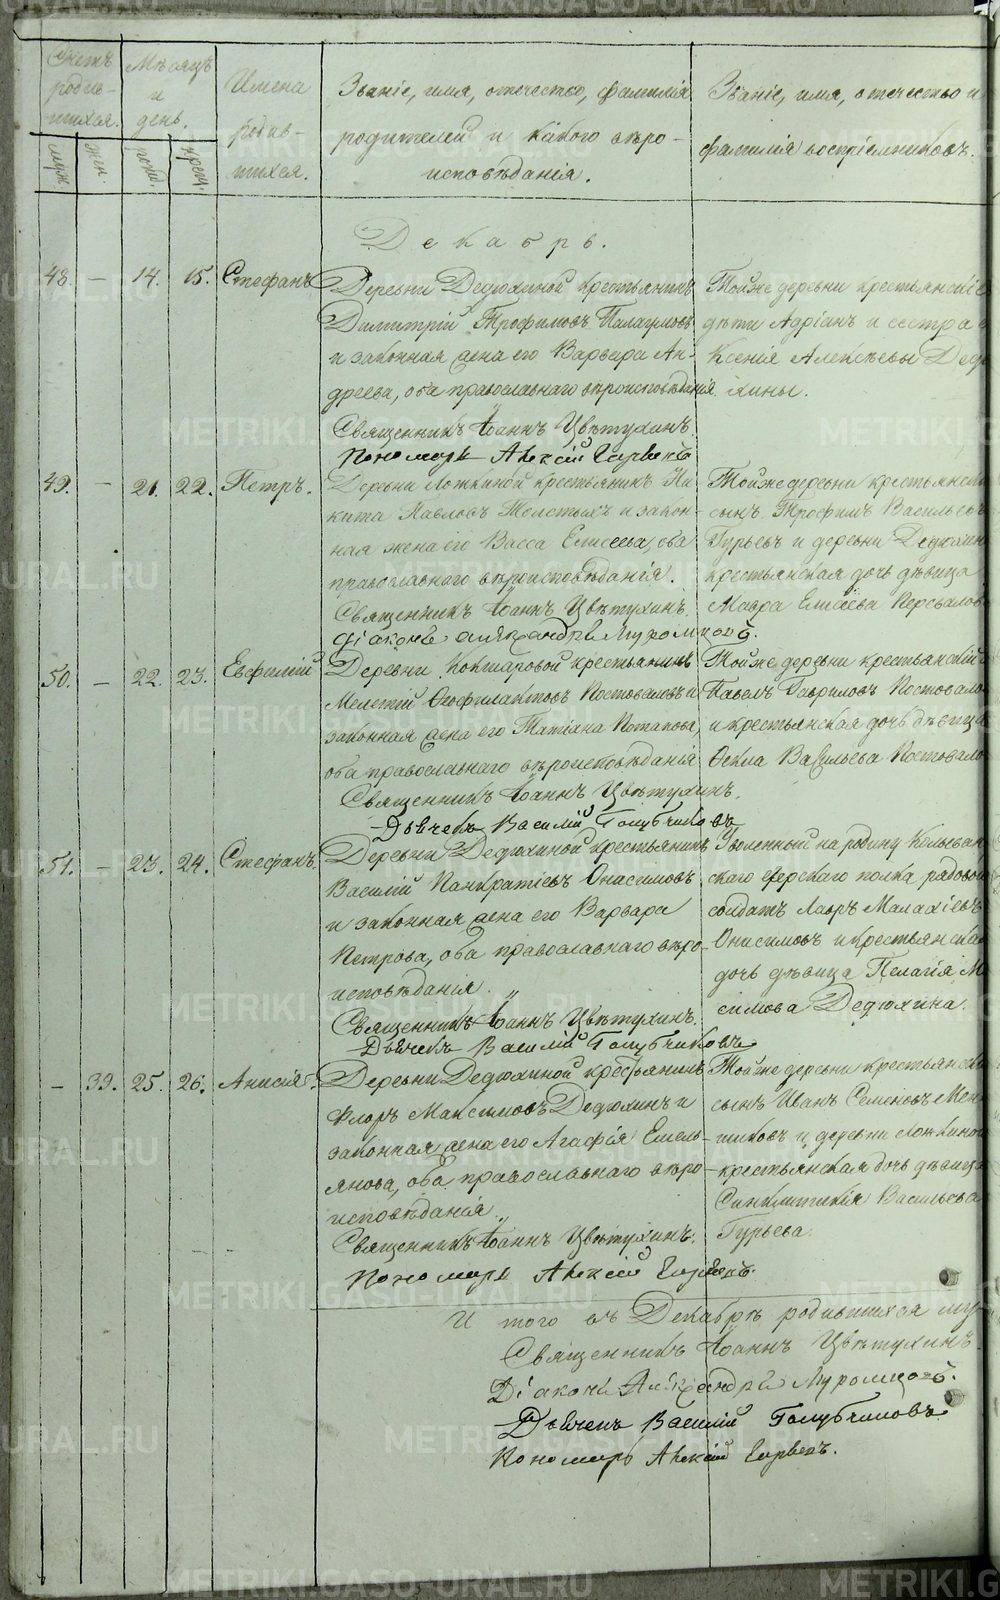 Счетъ родив-
шихся.
Мѣсяцъ
и
день.
Имена
родив-
шихся.
Званіе, имя, отчество, фамилія
родителей и какого вѣро-
исповѣданія.
Званіе, имя, отчество и
фамилія воспріемниковъ.
муж.
жен.
рожд.
крещ.
Декабрь.
48. — 14. 15. Стефанъ
Деревни Дедюхиной крестьянинъ
Димитрій Трофимовъ
и законная жена его Варвара Ан-
дреева, оба православнаго вѣроисповѣданія.
Священникъ Іоаннъ Цвѣтухинъ.
Пономарь Алексій
Тойже деревни крестьянскіе
дѣти Адріанъ и сестра
Ксенія Алексѣевы Дедю-
хины.
49. — 21. 22. Петръ.
Деревни Ложкиной крестьянинъ Ни-
кита Павловъ Толстыхъ и закон-
ная жена его Васса Елисеева, оба
православнаго вѣроисповѣданія.
Священникъ Іоаннъ Цвѣтухинъ.
Діаконъ Александръ Муромцовъ.
Тойже деревни крестьянскій
сынъ Трофимъ Васильевъ
Гурьевъ и деревни Дедюхин
крестьянская дочь дѣвица
Мавра Елисеева
50. — 22. 23. Евфимій
Деревни Кокшаровой крестьянинъ
Мелетій Феофилактовъ Постоваловъ и
законная жена его Татіана Потапова,
оба православнаго вѣроисповѣданія
Священникъ Іоаннъ Цвѣтухинъ.
Дьячекъ Василій Голубчиковъ
Тойже деревни крестьянскій
Павелъ Гавриловъ Постовало
и крестьянская дочь дѣвица
Фекла Васильева Постовало
51. — 23. 24. Стефанъ.
Деревни Дедюхиной крестьянинъ
Василій Панкратіевъ Онасимовъ
и законная жена его Варвара
Петрова, оба православнаго вѣро-
исповѣданія.
Священникъ Іоаннъ Цвѣтухинъ.
Дьячекъ Василій Голубчиковъ
Уволенный на родину Колыван
скаго егерскаго полка рядовой
солдатъ Лавръ Малахіевъ
Онисимовъ и крестьянская
дочь дѣвица Пелагія М
симова Дедюхина.
— 39. 25. 26. Анисія.
Деревни Дедюхиной крестьянинъ
Флоръ Максимовъ Дедюхинъ и
законная жена его Агафія Емель-
янова, оба православнаго вѣро-
исповѣданія.
Священникъ Іоаннъ Цвѣтухинъ.
Пономарь Алексій
Тойже деревни крестьянскі
сынъ Иванъ Семеновъ Мен
шиковъ и деревни Ложкиной
крестьянская дочь дѣвица
Синклитикія Васильева
Гурьева.
И того въ Декабрѣ родившихся му
Священникъ Іоаннъ Цвѣтухинъ.
Діаконъ Александръ Муромцовъ.
Дьячекъ Василій Голубчиковъ
Пономарь Алексій
METRIKI.GASO-URAL.RU